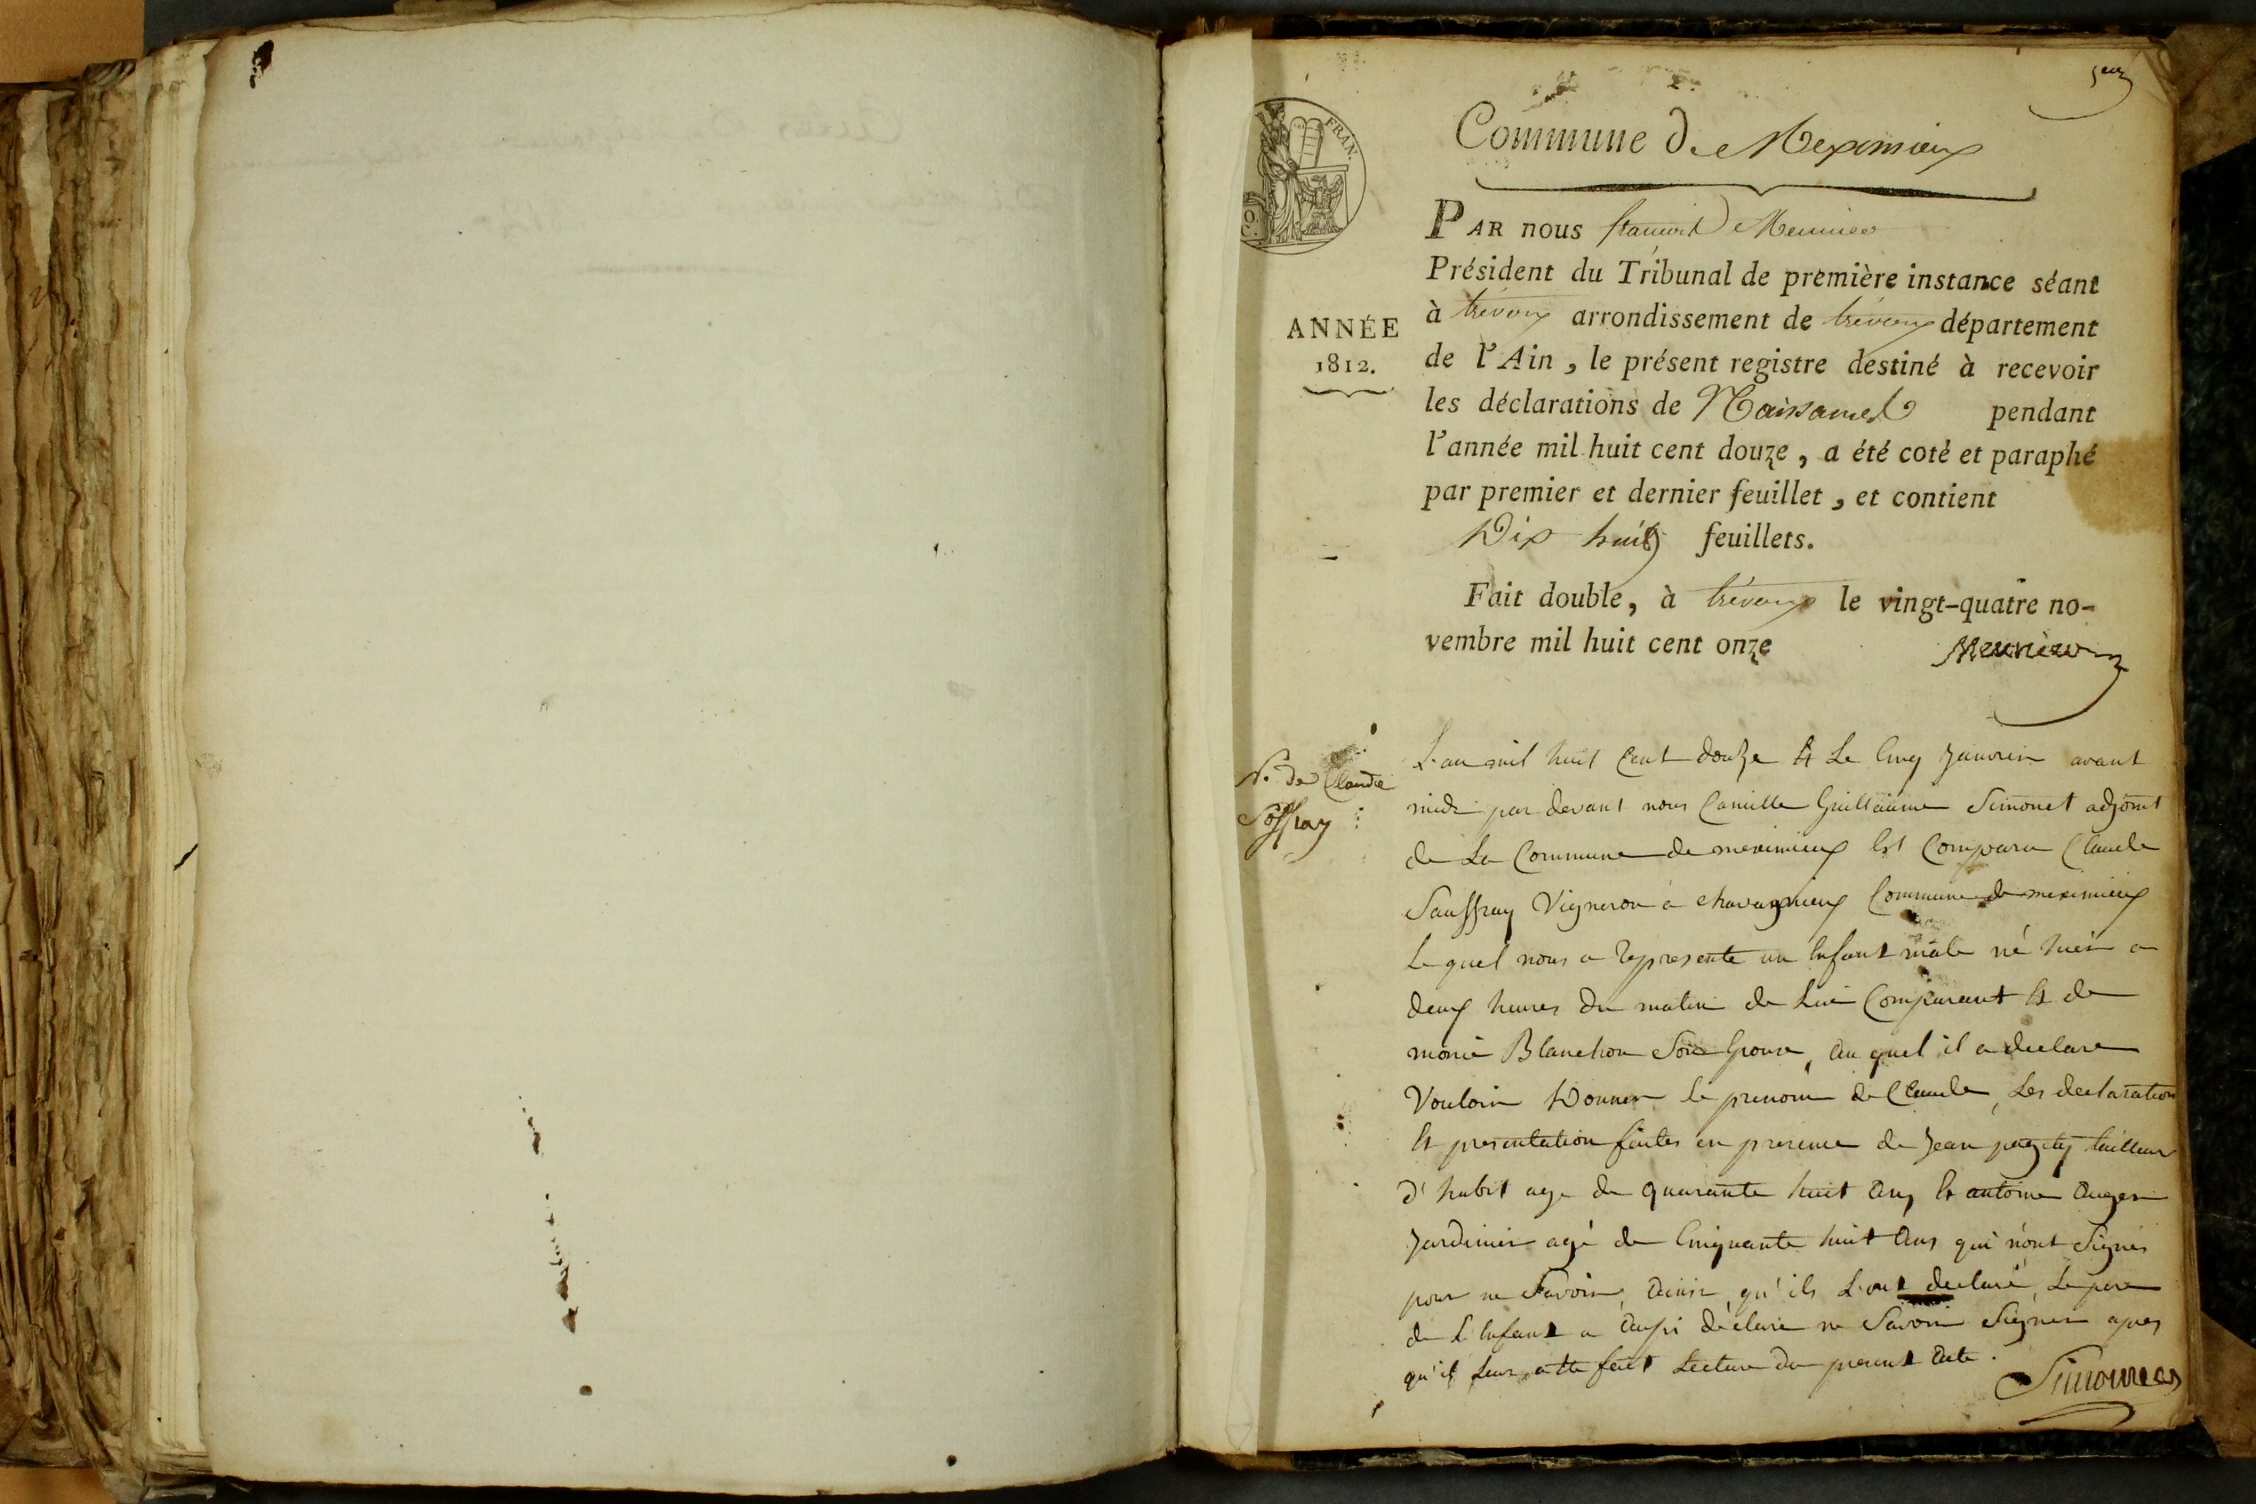 Commune de Meximieux
FRAN.
PAR nous françois Meunier
Président du Tribunal de première instance séant
à trévoux arrondissement de trévoux département
ANNÉE
1812.
de l'Ain, le présent registre destiné à recevoir
les déclarations de Naissances pendant
l'année mil huit cent douze, a été coté et paraphé
par premier et dernier feuillet, et contient
Dix huit feuillets.
Fait double, à trévoux le vingt-quatre no-
vembre mil huit cent onze
Meunier
N. de Claude
Soffray
L'an mil huit Cent douze Et Le Cinq Janvier avant
midi par devant nous Camille Guillaume Simonet adjoint
de La Commune de meximieux Est Comparu Claude
Sauffray Vigneron a chavagnieux Commune de meximieux
Le quel nous a représenté un Enfant mâle né hier a
deux heures du matin de Lui Comparant Et de
marie Blanchon Son Epouse, au quel il a declaré
Vouloir Donner le prenom de Claude, Les declaration
Et presentation faites en presence de Jean tailleur
d'habit age de quarante huit ans Et antoine auger
Jardinier agé de Cinquante huit ans qui n'ont Signés
pour ne Savoir, ainsi qu'ils L'ont declaré, Le pere
de L'Enfant a aussi déclaré ne Savoir Signer apres
qu'il Leur a été fait Lecture du present acte.
Simonet